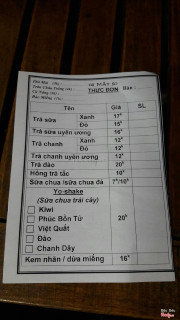 THỰC ĐƠN Bàn:
Tên Giá SL
Trà sữa Xanh 17⁰
Đỏ 15⁰
Trà sữa uyên ương 16⁰
Trà chanh Xanh 12⁰
Đỏ 12⁰
Trà chanh uyên ương 12⁰
Trà đào 20⁰
Hồng trà tắc 10⁰
Sữa chua /sữa chua đá 7⁰/10⁰
Yo-shake
(Sữa chua trái cây)
Kiwi
Phúc Bồn Tử 20⁰
Việt Quất
Đào
Chanh Dây
Kem nhãn / dừa miếng 16⁰